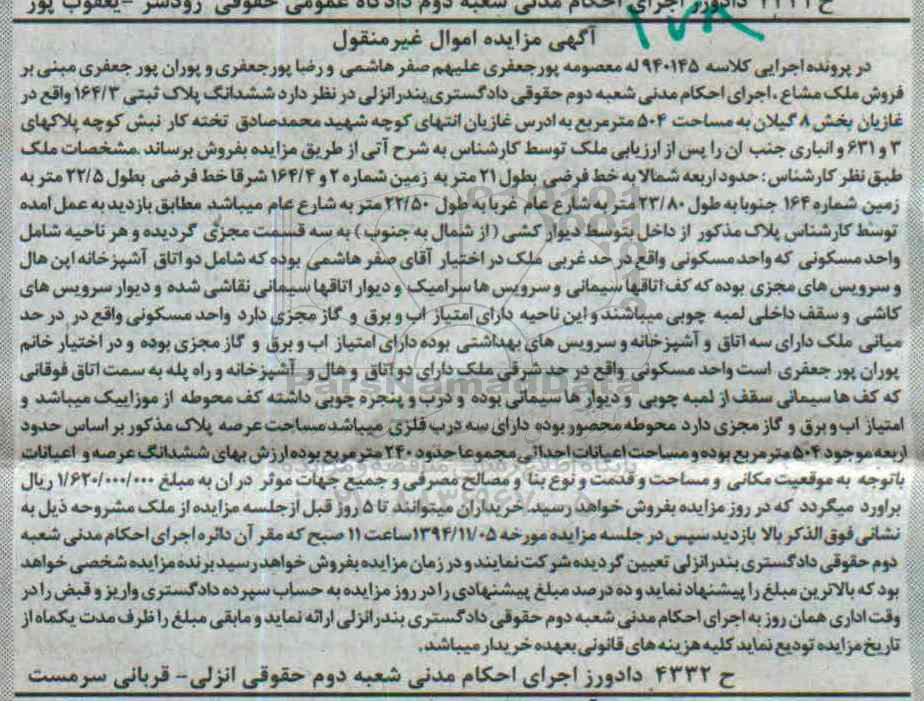 ح ۴۳۳۱ دادورز اجرای احکام مدنی شعبه دوم دادگاه عمومی حقوقی رودسر -یعقوب پور
۱۵۸
آگهی مزایده اموال غیرمنقول
در پرونده اجرایی کلاسه ۹۴۰۱۴۵ له معصومه پورجعفری علیهم صفر هاشمی و رضا پورجعفری و پوران پور جعفری مبنی بر
فروش ملک مشاع ، اجرای احکام مدنی شعبه دوم حقوقی دادگستری بندرانزلی در نظر دارد ششدانگ پلاک ثبتی ۱۶۴/۳ واقع در
غازیان بخش ۸ گیلان به مساحت ۵۰۴ مترمربع به ادرس غازیان انتهای کوچه شهید محمدصادق تخته کار نبش کوچه پلاکهای
۳ و ۶۳۱ و انباری جنب ان را پس از ارزیابی ملک توسط کارشناس به شرح آتی از طریق مزایده بفروش برساند .مشخصات ملک
طبق نظر کارشناس: حدود اربعه شمالا به خط فرضی بطول ۲۱ متر به زمین شماره ۲ و ۱۶۴/۴ شرقا خط فرضی بطول ۲۲/۵ متر به
زمین شماره ۱۶۴ جنوبا به طول ۲۳/۸۰ متر به شارع عام غربا به طول ۲۲/۵۰ متر به شارع عام میباشد مطابق بازدید به عمل امده
توسط کارشناس پلاک مذکور از داخل بتوسط دیوار کشی (از شمال به جنوب) به سه قسمت مجزی گردیده و هر ناحیه شامل
واحد مسکونی که واحد مسکونی واقع در حد غربی ملک در اختیار آقای صفر هاشمی بوده که شامل دو اتاق آشپزخانه اپن هال
و سرویس های مجزی بوده که کف اتاقها سیمانی و سرویس ها سرامیک و دیوار اتاقها سیمانی نقاشی شده و دیوار سرویس های
کاشی و سقف داخلی لمبه چوبی میباشند و این ناحیه دارای امتیاز اب و برق و گاز مجزی دارد واحد مسکونی واقع در در حد
میانی ملک دارای سه اتاق و آشپزخانه و سرویس های بهداشتی بوده دارای امتیاز اب و برق و گاز مجزی بوده و در اختیار خانم
پوران پور جعفری است واحد مسکونی واقع در حد شرقی ملک دارای دو اتاق و هال و آشپزخانه و راه پله به سمت اتاق فوقانی
که کف ها سیمانی سقف از لمبه چوبی و دیوار ها سیمانی بوده و درب و پنجره چوبی داشته کف محوطه از موزاییک میباشد و
امتیاز اب و برق و گاز مجزی دارد محوطه محصور بوده دارای سه درب فلزی میباشد مساحت عرصه پلاک مذکور بر اساس حدود
اربعه موجود ۵۰۴ متر مربع بوده و مساحت اعیانات احداثی مجموعا حدود ۲۴۰ متر مربع بوده ارزش بهای ششدانگ عرصه و اعیانات
باتوجه به موقعیت مکانی و مساحت و قدمت و نوع بنا و مصالح مصرفی و جمیع جهات موثر در ان به مبلغ ۱/۶۲۰/۰۰۰/۰۰۰ ریال
براورد میگردد که در روز مزایده بفروش خواهد رسید. خریداران میتوانند تا ۵ روز قبل از جلسه مزایده از ملک مشروحه ذیل به
نشانی فوق الذکر بالا بازدید سپس در جلسه مزایده مورخه ۱۳۹۴/۱۱/۰۵ ساعت ۱۱ صبح که مقر آن دائره اجرای احکام مدنی شعبه
دوم حقوقی دادگستری بندرانزلی تعیین گردیده شرکت نمایند و در زمان مزایده بفروش خواهد رسید برنده مزایده شخصی خواهد
بود که بالاترین مبلغ را پیشنهاد نماید و ده درصد مبلغ پیشنهادی را در روز مزایده به حساب سپرده دادگستری واریز و قبض را در
وقت اداری همان روز به اجرای احکام مدنی شعبه دوم حقوقی دادگستری بندرانزلی ارائه نماید و مابقی مبلغ را ظرف مدت یکماه از
تاریخ مزایده تودیع نماید کلیه هزینه های قانونی بعهده خریدار میباشد.
ح ۴۳۳۲ دادورز اجرای احکام مدنی شعبه دوم حقوقی انزلی- قربانی سرمست
ParsNamadData